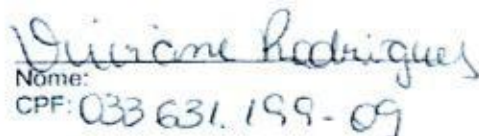 Viviane Rodrigues
Nome:
CPF: 033 631. 199-09